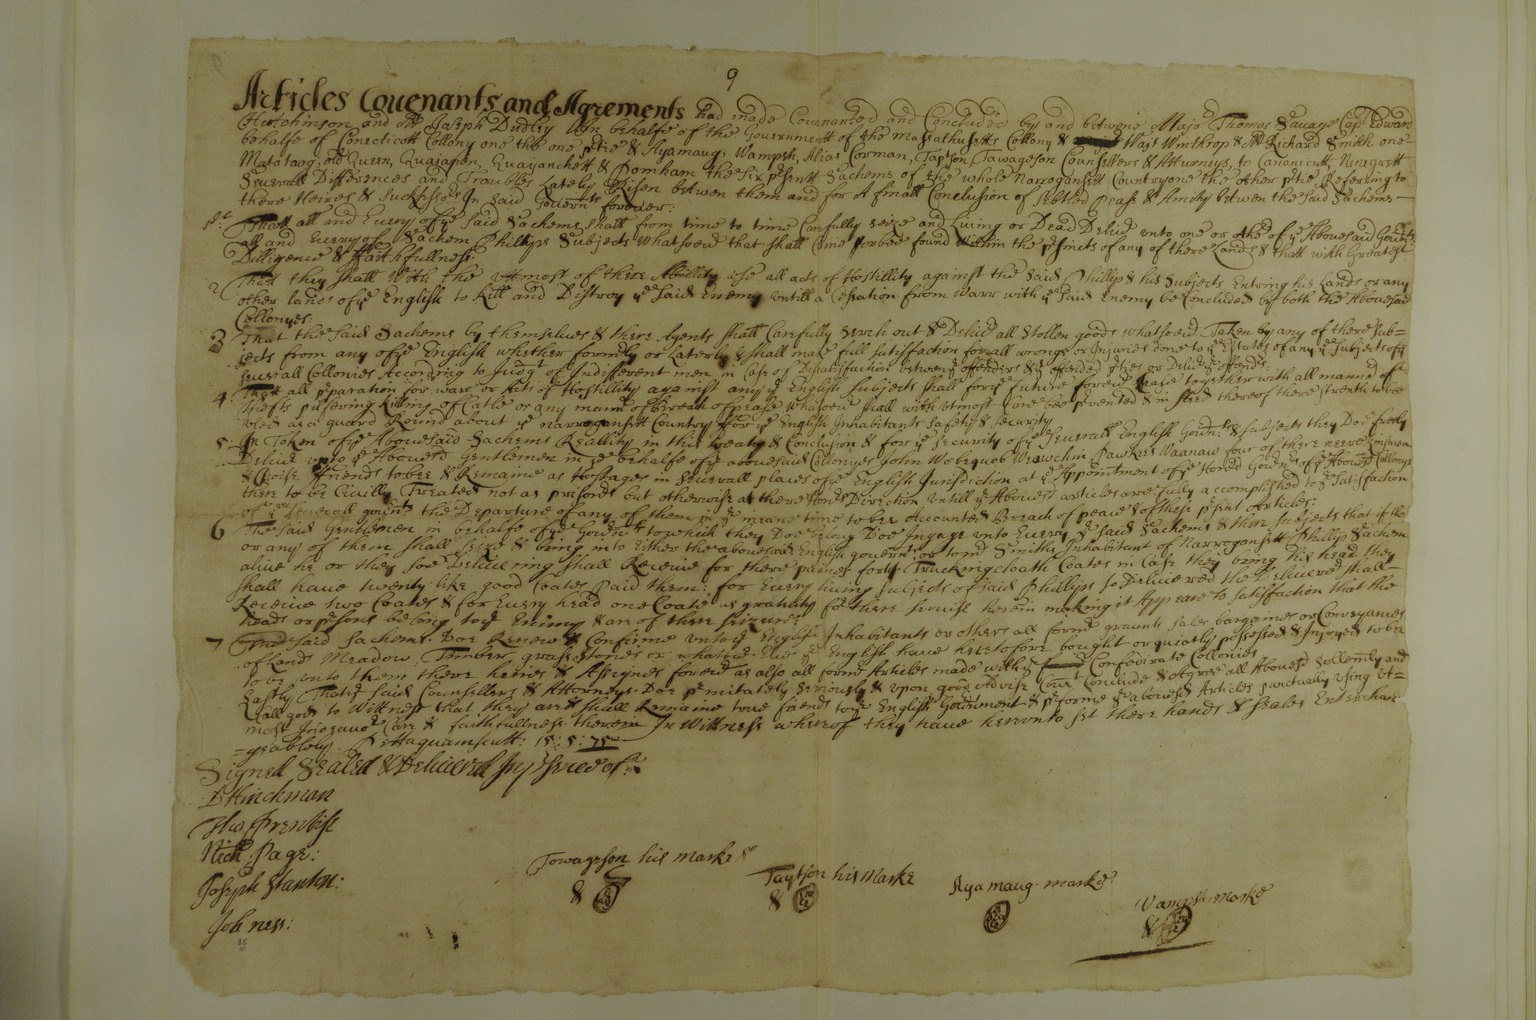 9
Articles Couenants and Agrements had made Couenanted and Concluded by and betwene Majo.r Thomas Sauage Cap.t Edward
Hutchinson and m.r Joseph Dudley in behalfe of the Gouernment of the Massathusetts Collony & Wayt Winthrop & m.r Richard Smith one
behalfe of Conecticott Collony one the one p.tie & Ayamaug, Wampsh, Alias Corman, Taytson Tawageson Counsellers & Atturnys, to Canonicutt, Ninegrett
Matataog, old Queen Quaiapen, Quayanchett & Pomham the six p.rsentt Sachems of the whole Narrogansett Countrey one the other p.tie Referring to
Seuerall Differences and Troubles Lately Risen betwen them and for A finall Conclusion of Settled Pease & Amity betwen the Said Sachems
there Heires & Suckessers in Said Gouern.ts foreuer:
1st That all and Euery of y.e Said Sachems shall from time to time Carfully seize and Liuing or Dead Deliu.r vnto one or other of y.e Abouesaid Gouern.ts
all and Euery of Sachem Phillips Subjects Whatsoeu.r that shall Come or bee found Within the p.rsincts of any of there Lands & that with Greatest
Dilligence & ffaithfullness:
2 That they shall With the vtmost of there Abillity vse all acts of Hostillity against the Said Phillip & his Subjects Entring his Lands or any
other lands of y.e English to Kill and Distroy y.e Said Enemy vntill a Cessation from Warr with y.e Said Enemy be Concluded by both the Abouesaid
Collonyes:
3 That the Said Sachems by themselues & there Agents shall Carefully serch out & Deliu.r all Stollen goods whatsoeu.r Taken by any of there Sub=
jects from any of y.e English whether formerly or Laterly & shall make full Satisfaction for all wrongs or Injuries done to y.e Estates of any y.e Subjects of y.e
Seuerall Collonies According to Judg.t of Indifferent men in Case of Dissatisfaction betwen y.e offenders & y.e offended p.ties or Deliu.r y.e offend.rs
4 That all p.rparation for warr or Acts of Hostillity against any y.e English Subjects shall for y.e future foreu.r Cease together with all maner of
thefts pilfering Killing of Catle or any maner of Breach of pease whatsoeu.r shall with Vtmost Care bee p.reuented & in sted thereof there strenth to be
vsed as a guard Round about y.e Narrogansett Country for y.e English Inhabitants Safety & Security
5 In Token of y.e Abouesaid Sachems Reallity in this treaty & Conclusion & for y.e Security of y.e Seuerall English Gouern.ts & Subjects they Doe freely
Deliu.r vnto y.e Abouesd Gentlemen in y.e behalfe of y.e abouesaid Collonyes John Wobequob Weowchim Pawkes Waenaw four of there neere Kinsmen
& Choise ffriends to bee & Remaine as Hostages in Seuerall places of y.e English Jurisdiction at y.e Appointment of y.e Hon.rd Gouern.rs of y.e Abouesd Collonys
there to be Ciuilly Treated not as prisoners but otherwise at there Hono.rs Direction vntill y.e Abouesd articles are fully accomplished to y.e Satisfaction
of y.e Seuerall gouern.ts the Departure of any of them in y.e meane time to bee Accounted Breach of peace & of these p.rsent Articles:
6 The Said Gentlemen in behalfe of y.e Gouern.ts to which they Doe belong Doe Ingage vnto Euery y.e Said Sachems & there Subjects that if they
or any of them shall seize & bring into Either the abouesaid English gouern.ts or to m.r Smith Inhabitant of Narrogansett Phillip Sachem
aliue he or they soe Deliuering shall Receiue for there paines forty Truckingcloath Coates in Case they bring his head they
shall haue twenty like good Coates paid them: for Euery liuing Subjects of Said Phillips so Deliuered the Deliuerer shall
Receiue two Coates & for Euery head one Coate as gratuity for there seruise herein making it Appeare to Satisfaction that the
heads or persons belong to y.e Enimy & are of there seizure:
7 The said Sachems Doe Renew & Confirme vnto y.e English Inhabitants or others all form.r graunts sales bargaines or Conveyances
of Lands Meadow Timber, grass Stones or whateu.r Else y.e English haue heretofore bought or quiatly possessed & Injoyed to be
to be vnto them there heires & Assignes foreu.r as also all form.r Articles made with y.e Confederate Collonies
Lastly That y.e Said Counsellers & Attorneys Doe p.rmitately seriously & vpon good Advise Cou.rt Conclude & Agree all Abouesd Sollemly and
Call god to Wittness that they are & shall Remaine true friends to y.e English Gouerment & p.rforme y.e abouesd Articles punctually vsing vt=
most Indeauo.r Care & faithfullness therein In Wittness whereof they haue herevnto set there hands & seales Enterchan
=geablely Pettaquamscutt: 15: 5: 75
Signed Sealed & Deliuered In p.rsence of
D Hinckman
Tho Prentise
Nich Page:
Joseph Stanton:
Job ness:
Towageson his marke
&
Taytson his marke
&
Aya maug marke
Wampsh marke
&